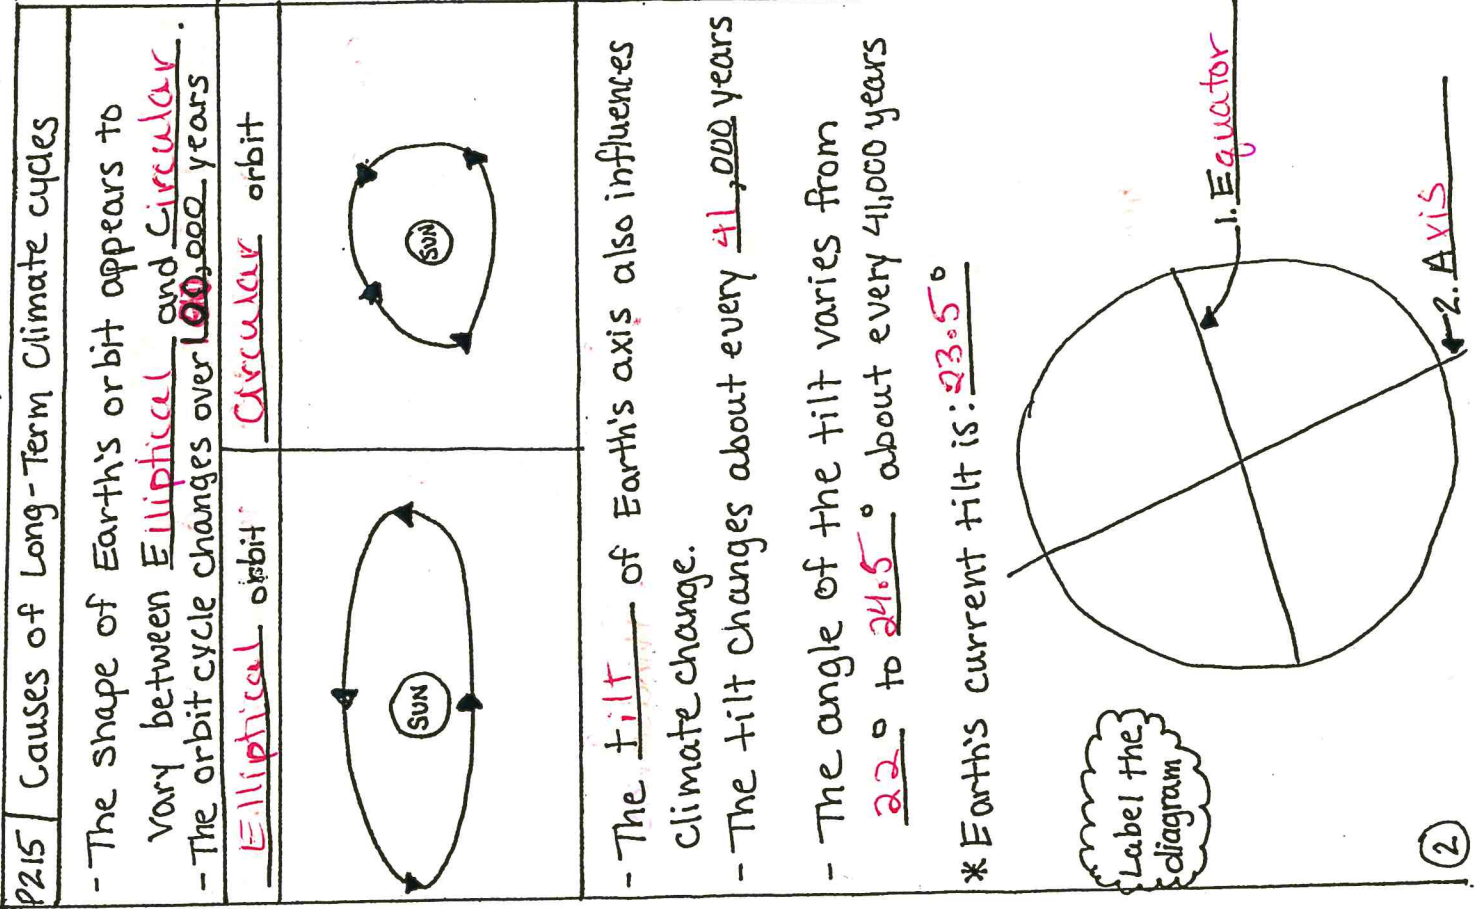 P215 Causes of Long-Term Climate cycles
- The shape of Earth's orbit appears to
vary between Elliptical and Circular.
- The orbit cycle changes over 100,000 years
Elliptical orbit
Circular orbit
SUN
SUN
- The tilt of Earth's axis also influences
climate change.
- The tilt changes about every 41,000 years
- The angle of the tilt varies from
22° to 24.5° about every 41,000 years
* Earth's current tilt is: 23.5°
Label the
diagram
1. Equator
2. Axis
2